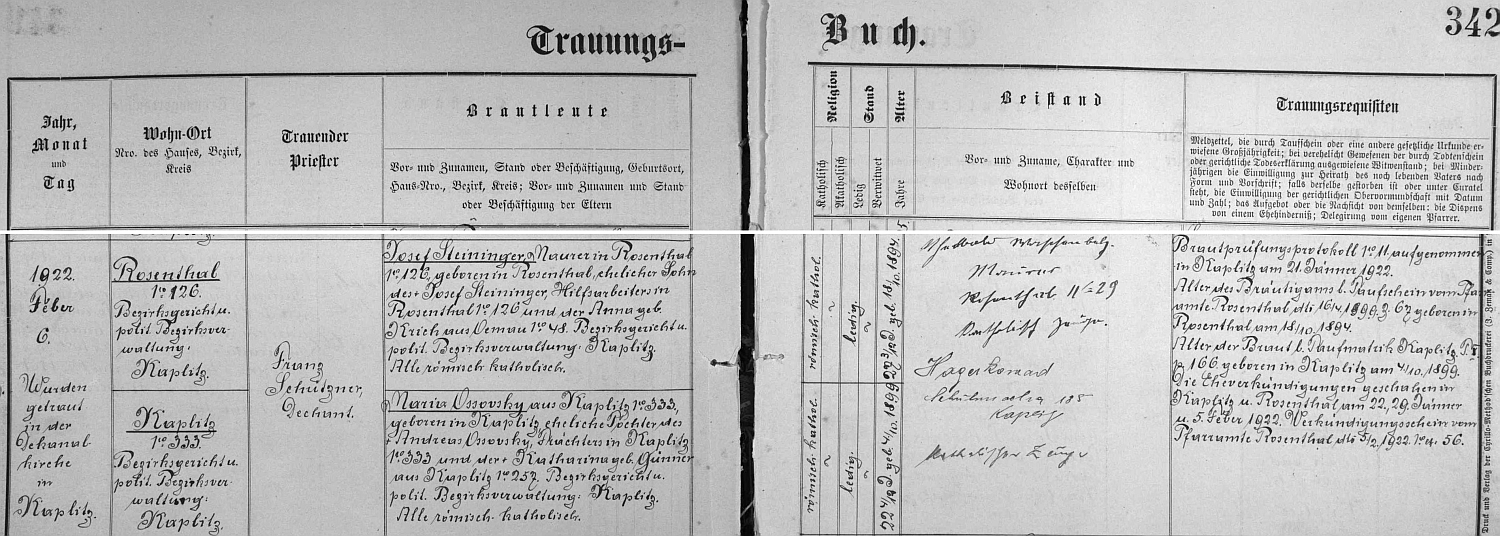 Trauungs-
Buch.
342
Jahr,
Monat
und
Tag
Wohn-Ort
Nro. des Hauses, Bezirk,
Kreis
Trauender
Priester
Brautleute
Vor- und Zunamen, Stand oder Beschäftigung, Geburtsort,
Haus-Nro., Bezirk, Kreis; Vor- und Zunamen und Stand
oder Beschäftigung der Eltern
Religion
Katholisch
Akatholisch
Stand
Ledig
Verwitwet
Alter
Jahre
Beistand
Vor- und Zuname, Charakter und
Wohnort desselben
Trauungsrequisiten
Meldzettel, die durch Taufschein oder eine andere gesetzliche Urkunde er-
wiesene Großjährigkeit; bei verehelicht Gewesenen der durch Todtenschein
oder gerichtliche Todeserklärung ausgewiesene Witwenstand; bei Minder-
jährigen die Einwilligung zur Heirath des noch lebenden Vaters nach
Form und Vorschrift; falls derselbe gestorben ist oder unter Curatel
steht, die Einwilligung der gerichtlichen Obervormundschaft mit Datum
und Zahl; das Aufgebot oder die Nachricht von demselben: die Dispens
von einem Ehehinderniß; Delegirung vom eigenen Pfarrer.
1922.
Feber
6.
Wurden
getraut
in der
Dekanal-
kirche
in
Kaplitz.
Rosenthal
No 126.
Bezirksgericht u.
polit. Bezirksver-
waltung:
Kaplitz.
Kaplitz
No 333.
Bezirksgericht u.
polit. Bezirksver-
waltung:
Kaplitz.
Franz
Schützner,
Dechant.
Josef Steininger, Maurer in Rosenthal
No 126, geboren in Rosenthal, ehelicher Sohn
des Josef Steininger, Hilfsarbeiters in
Rosenthal No 126 und der Anna geb.
Krich aus Oemau No 48. Bezirksgericht u.
polit. Bezirksverwaltung: Kaplitz.
Alle römisch-katholisch.
Maria Ossovsky aus Kaplitz No 333,
geboren in Kaplitz, eheliche Tochter des
Andreas Ossovsky, Trächters in Kaplitz
No 333 und der + Katharina geb. Günner
aus Kaplitz No 257. Bezirksgericht u.
polit. Bezirksverwaltung: Kaplitz.
Alle römisch-katholisch.
römisch-kathol.
ledig.
geb. 18/10. 1894.
römisch-kathol.
ledig.
geb. 4/10. 1899
Maurer
Rosenthal No 29
Katholisch Zeuge.
Hager Konrad
185
Katholischer Zeuge
Brautprüfungsprotokoll No 11, aufgenommen
in Kaplitz am 21. Jänner 1922.
Alter des Bräutigams l. Taufschein vom Pfar-
amte Rosenthal dti 16/4. 1899 Z. 67, geboren in
Rosenthal am 18/10. 1894.
Alter der Braut l. Taufmatrik Kaplitz
p. 166. geboren in Kaplitz am 4/10. 1899.
Die Eheverkündigungen geschahen in
Kaplitz u. Rosenthal am 22., 29. Jänner
u. 5. Feber 1922. Verkündigungsschein vom
Pfarramte Rosenthal dti 5/2. 1922. No 56.
Druck und Verlag der Cyrillo-Method'schen Buchdruckerei (J. Zeman & Comp.) in